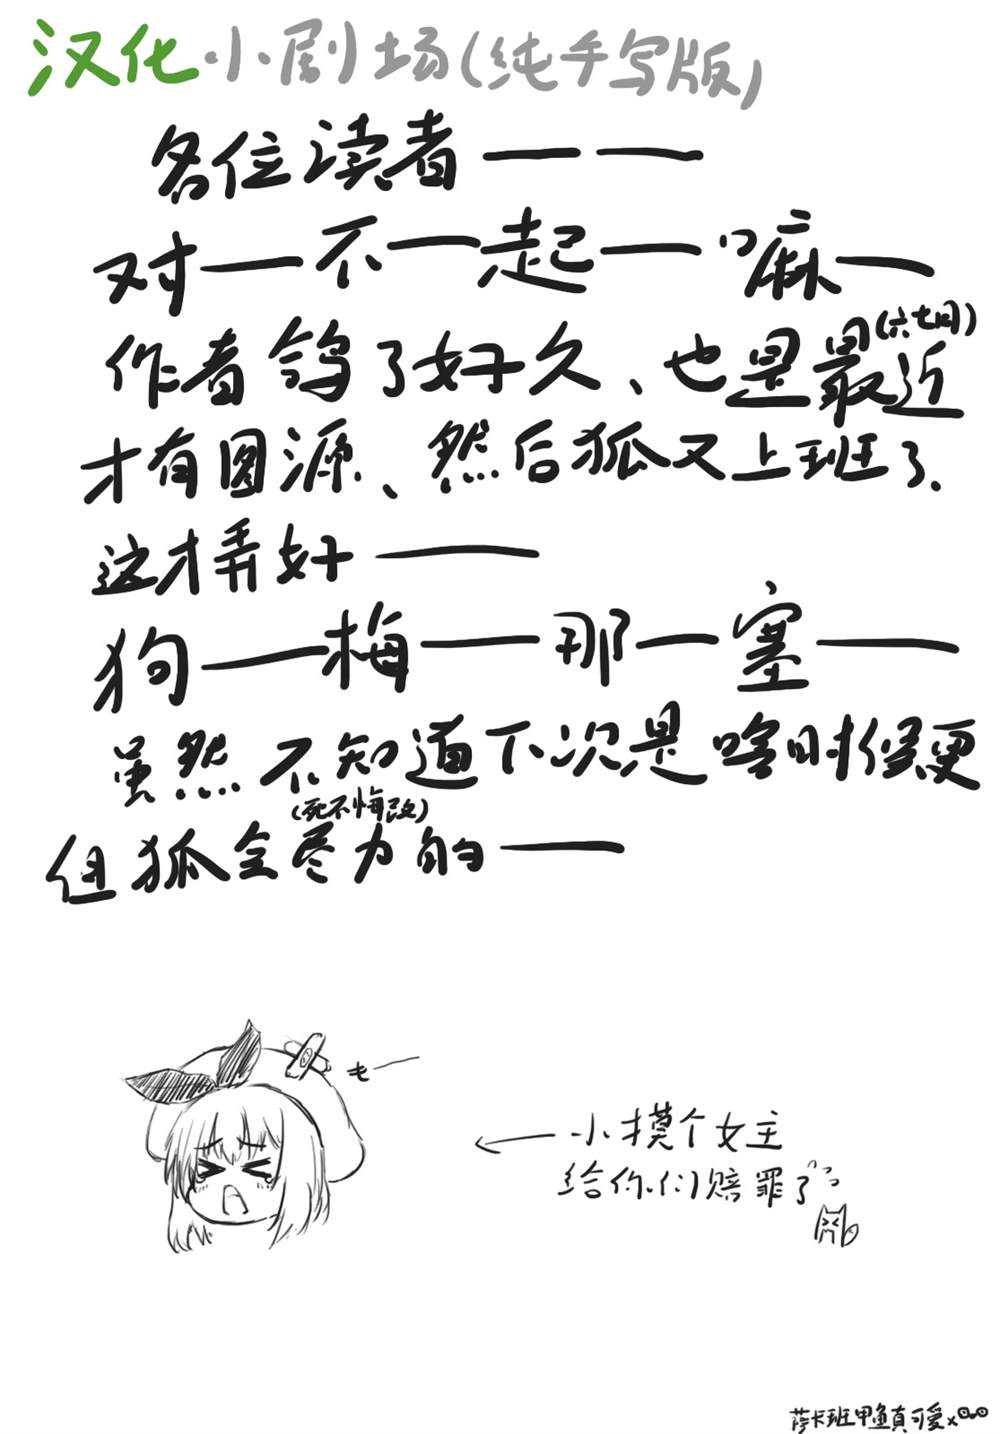 汉化小剧场(纯手写版)
各位读者——
对—不—起—嘛—
作者鸽了好久、也是最近(六七月)
才有图源、然后狐又上班了.
这才弄好——
狗—梅—那—塞—
虽然不知道下次是啥时候更
(死不悔改)
但狐会尽力的—
小摸个女主
给你们赔罪了
萨卡班甲鱼真可爱x